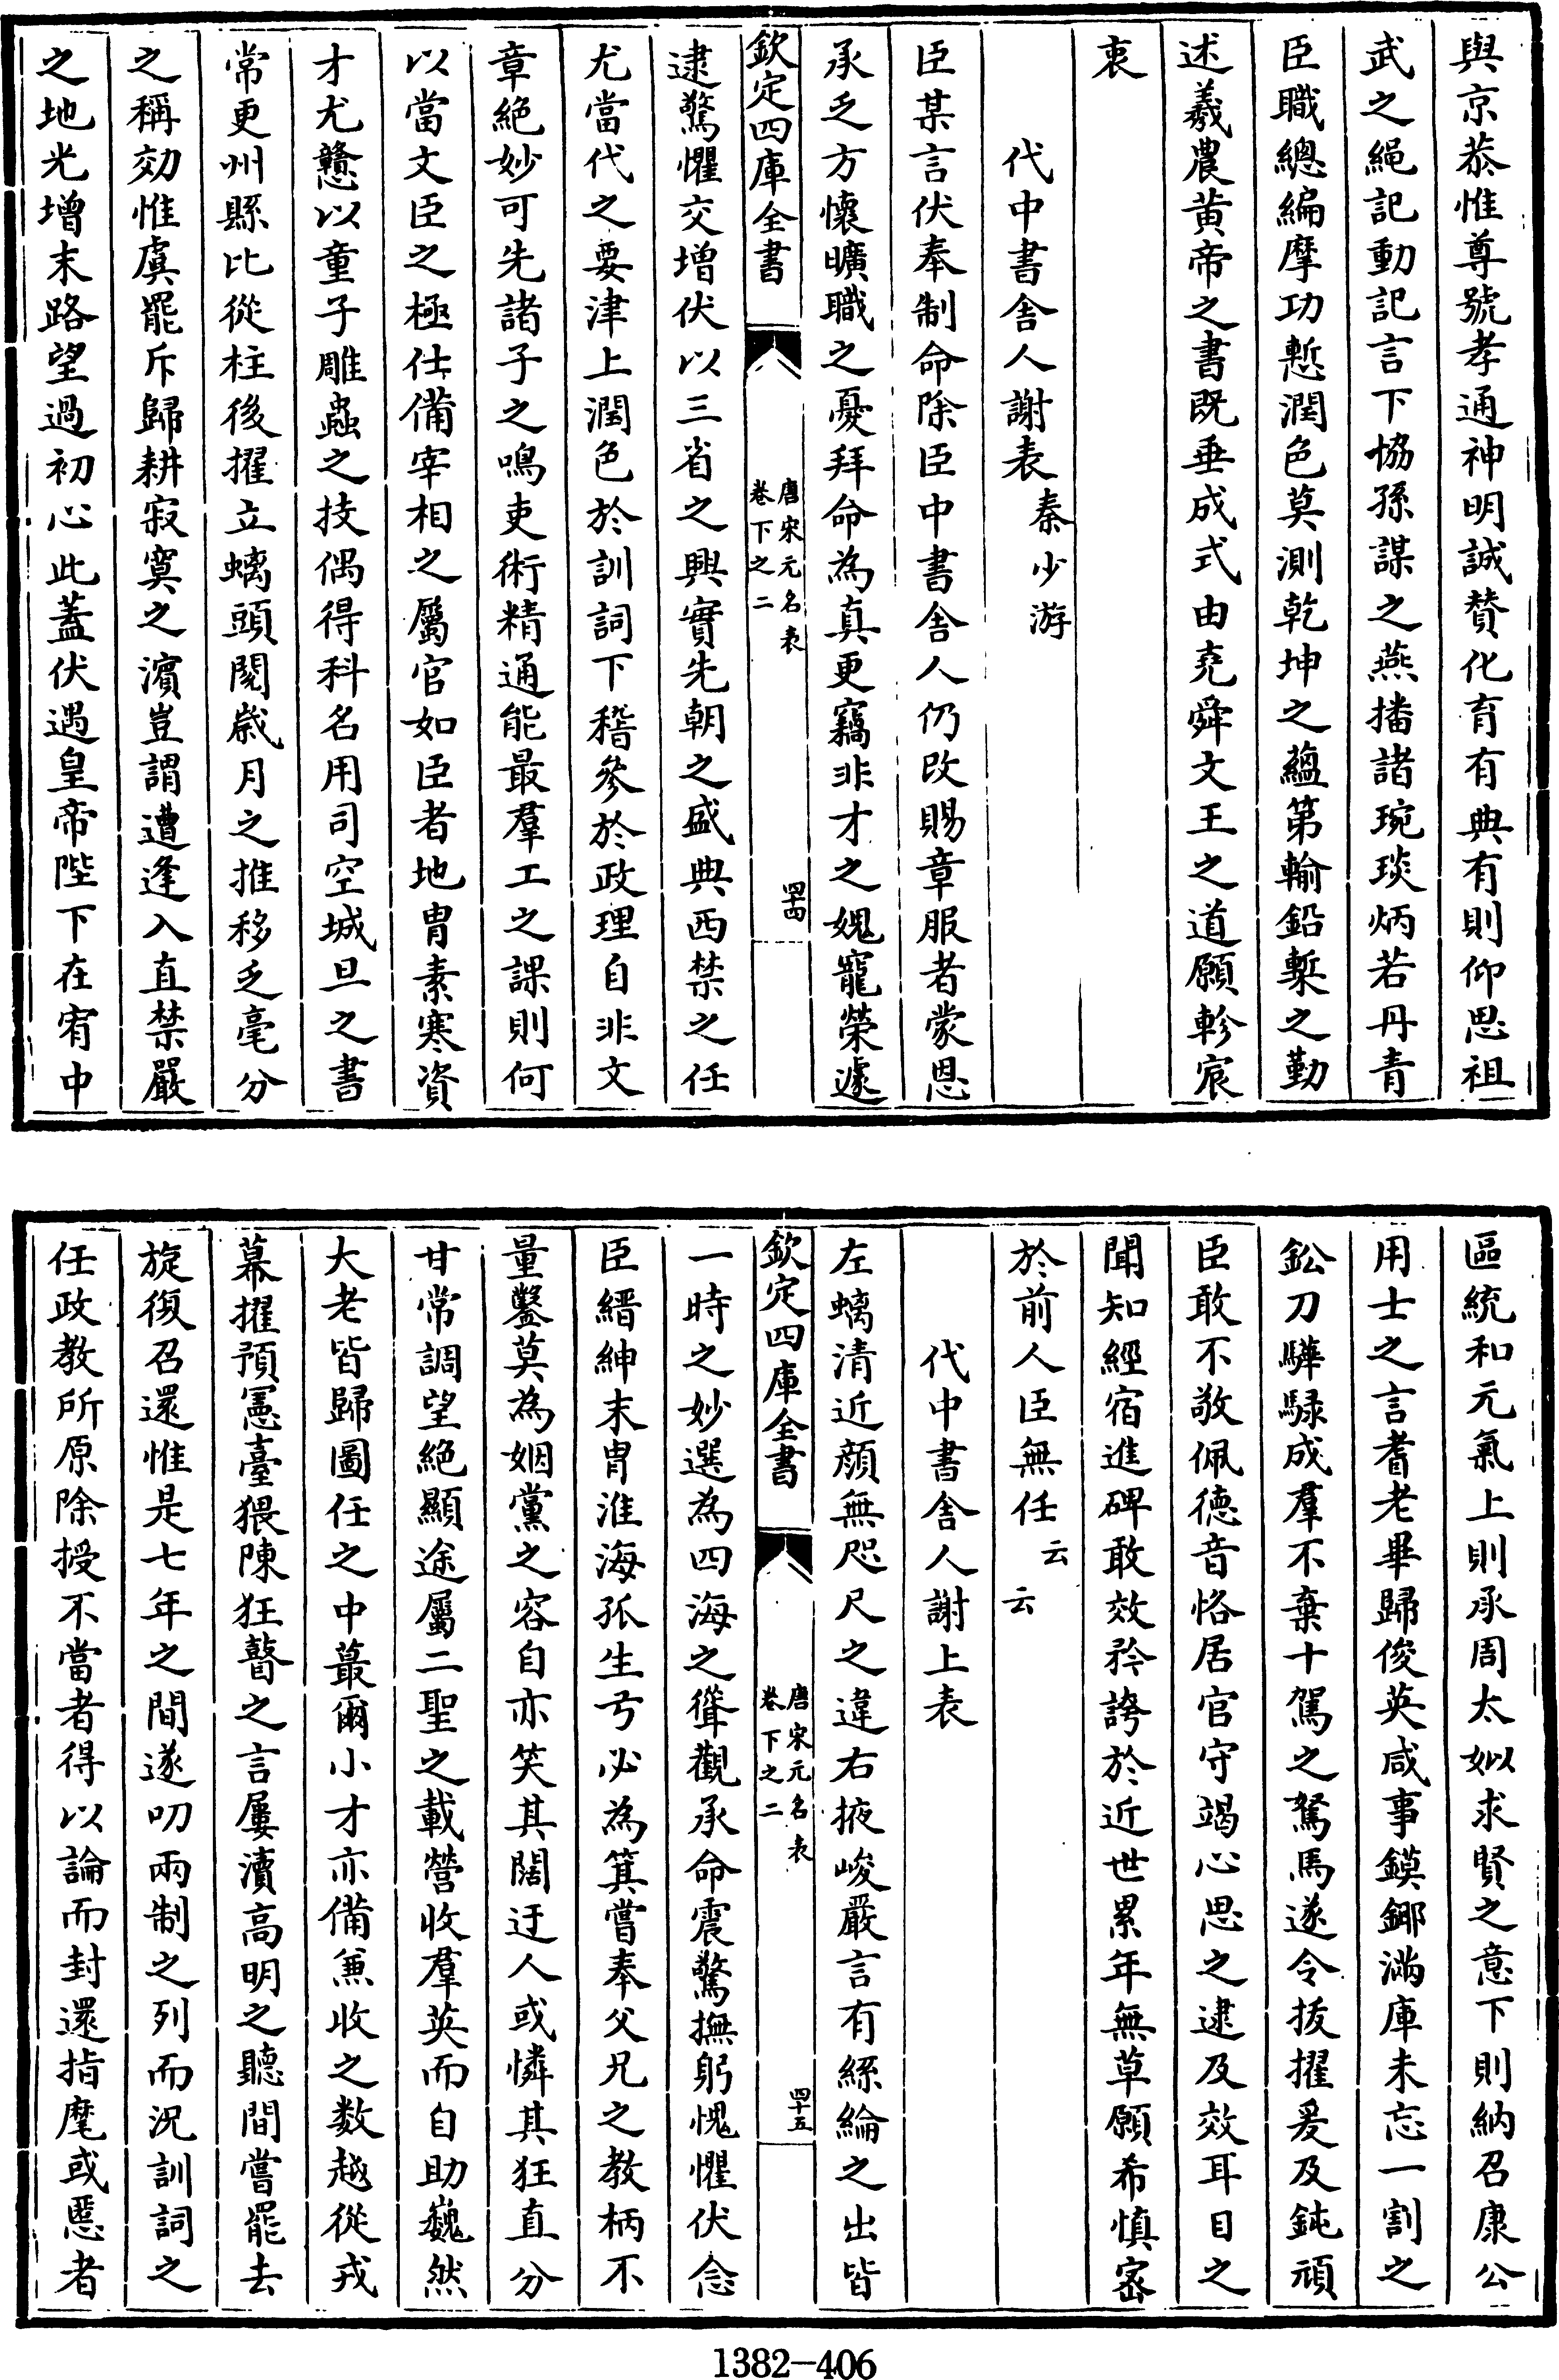 與京恭惟尊號孝通神明誠贊化育有典有則仰思祖
武之絕記動記言下協孫謀之燕播諸琬琰炳若丹青
臣職總編摩功慙潤色莫測乾坤之蘊第輸鉛槧之勤
述羲農黄帝之書既垂成式由堯舜文王之道願軫宸
衷
代中書舍人謝表 秦少游
臣某言伏奉制命除臣中書舍人仍改賜章服者蒙恩
承乏方懷曠職之憂拜命為真更竊非才之媿寵榮遽
欽定四庫全書 唐宋元名表 卷下之二 四十四
逮驚懼交增伏以三省之興實先朝之盛典西禁之任
尤當代之要津上潤色於訓詞下稽參於政理自非文
章絶妙可先諸子之鳴吏術精通能最羣工之課則何
以當文臣之極仕備宰相之屬官如臣者地胄素寒資
才尤戇以童子雕蟲之技偶得科名用司空城旦之書
常更州縣比從柱後擢立螭頭閱嵗月之推移乏毫分
之稱効惟虞罷斥歸耕寂寞之濱豈謂遭逢入直禁嚴
之地光增末路望過初心此蓋伏遇皇帝陛下在宥中
區統和元氣上則承周太姒求賢之意下則納召康公
用士之言耆老畢歸俊英咸事鏌鋣滿庫未忘一割之
鈆刀驊騄成羣不棄十駕之駑馬遂令拔擢爰及鈍頑
臣敢不敬佩德音恪居官守竭心思之逮及效耳目之
聞知經宿進碑敢效矜誇於近世累年無草願希慎宻
於前人臣無任云云
代中書舍人謝上表
左螭清近顔無咫尺之違右掖峻嚴言有絲綸之出皆
欽定四庫全書 唐宋元名表 卷下之二 四十五
一時之妙選為四海之聳觀承命震驚撫躬愧懼伏念
臣縉紳末胄淮海孤生弓必為箕嘗奉父兄之教柄不
量鑿莫為姻黨之容自亦笑其闊迂人或憐其狂直分
甘常調望絶顯途屬二聖之載營收羣英而自助巍然
大老皆歸圖任之中蕞爾小才亦備兼收之數越從戎
幕擢預憲臺猥陳狂瞽之言屢瀆高明之聽間嘗罷去
旋復召還惟是七年之間遂叨兩制之列而況訓詞之
任政教所原除授不當者得以論而封還指麾或慝者
1382-406